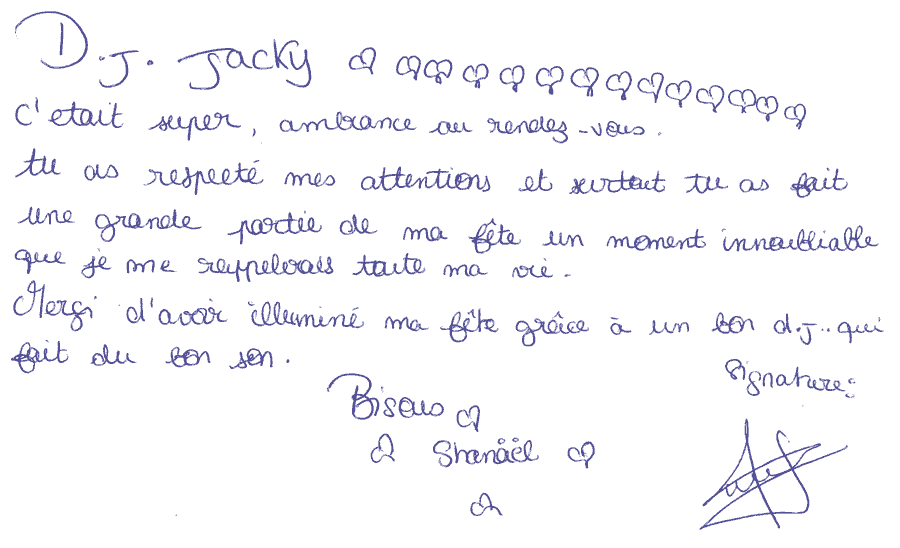 D.J. Jacky
c'etait super, ambiance au rendez-vous.
tu as respecté mes attentions et surtout tu as fait
une grande partie de ma fête un moment innoubliable
que je me reppelerais toute ma vie.
Merçi d'avoir illuminé ma fête grâce à un bon d.J.. qui
fait du bon son.
Signature:
Bisous
Shanaël